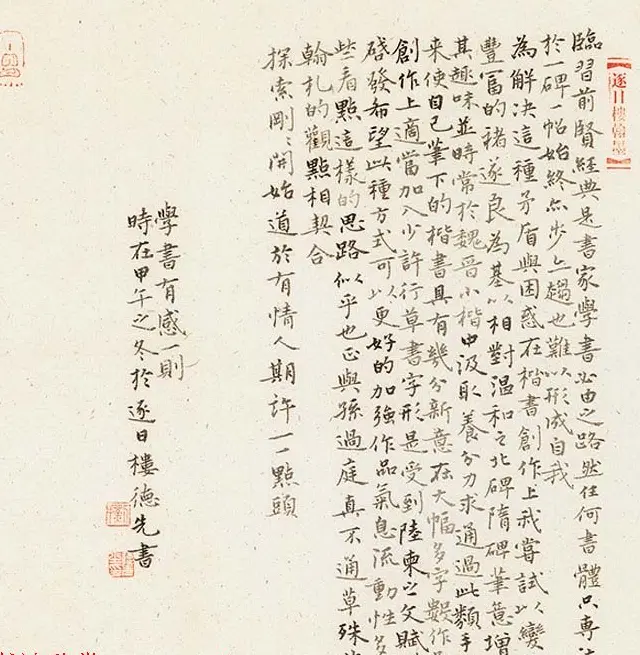 【逐日樓翰墨】
臨習前賢經典是書家學書必由之路然任何書體只專
於一碑一帖始終亦步亦趨也難以形成自我
為解決這種矛盾與困惑在楷書創作上我嘗試以變
豐富的褚遂良為基以相對温和之北碑隋碑筆意增
其趣味並時常於魏晉小楷中汲取養分力求通過此類手
来使自己筆下的楷書具有幾分新意在大幅多字數作
創作上適當加入少許行草書字形是受到陸柬之文賦
啓發希望此種方式可以更好的加強作品氣息流動性多
些看點這樣的思路似乎也正與孫過庭真不通草殊
翰札的觀點相契合
探索剛〻開始道於有情人期許一一點頭
學書有感一則
時在甲午之冬於逐日樓德先書